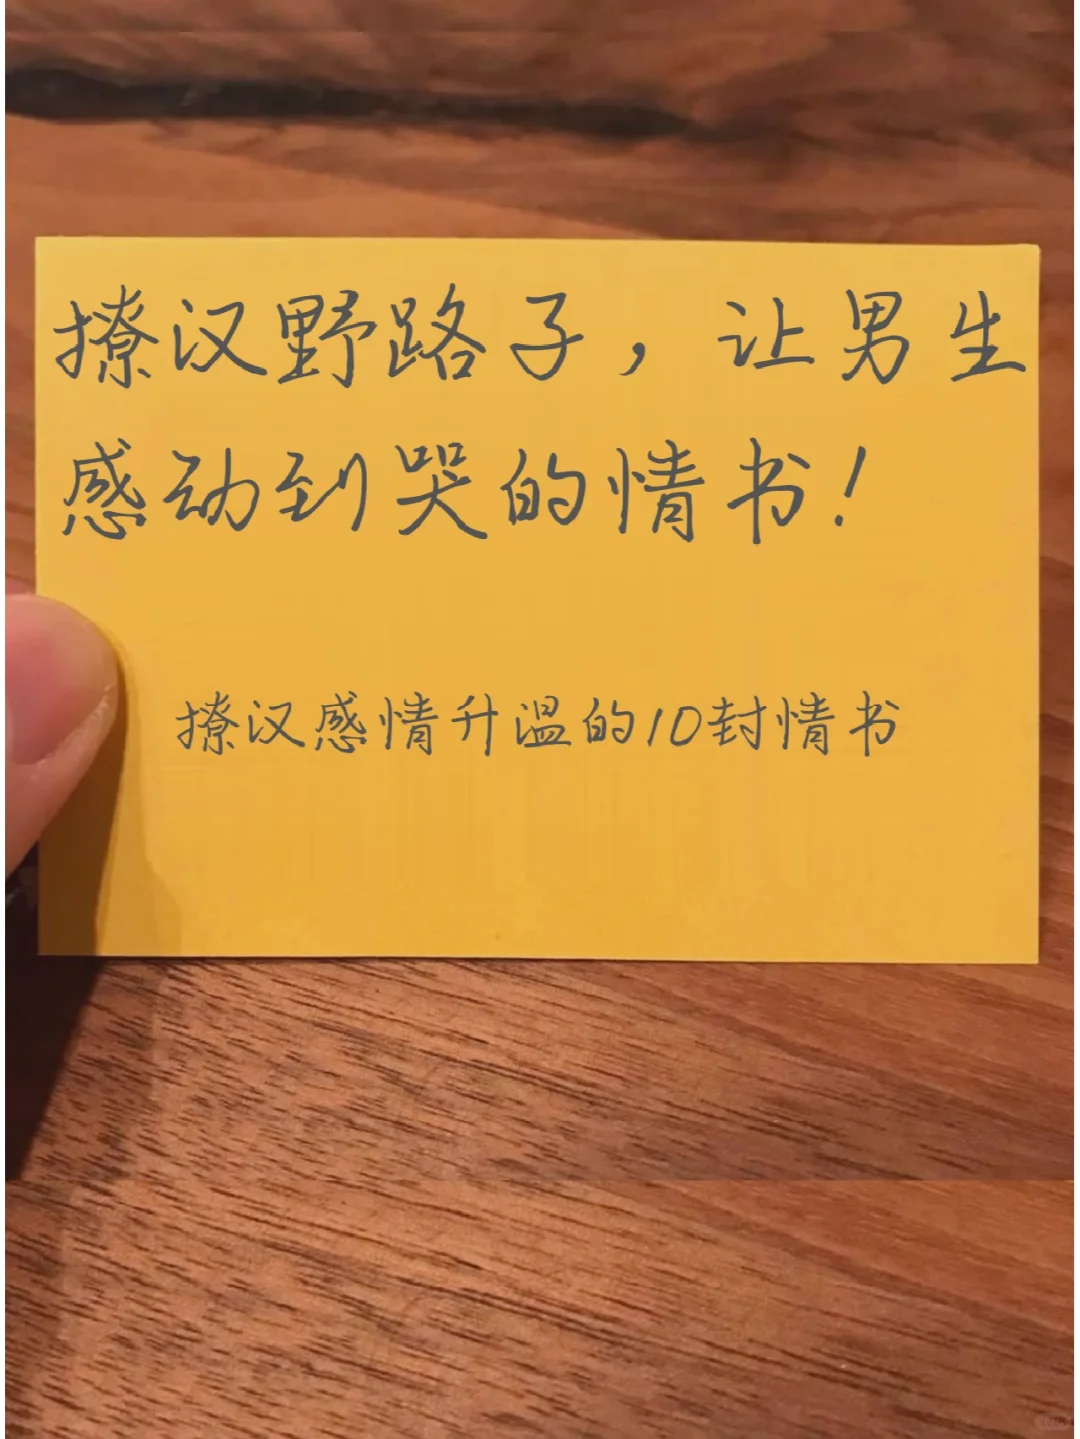 撩汉野路子，让男生
感动到哭的情书！
撩汉感情升温的10封情书